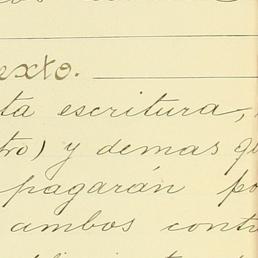 exto.
ta escritura,
tro) y demas qu
pagarán po
ambos contr